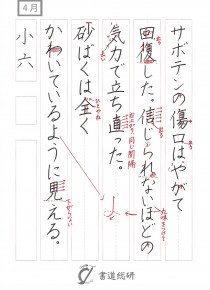 4月
サボテンの傷口はやがて
回復した。信じられないほどの
気力で立ち直った。
砂ばくは全く
かわいているように見える。
小六
書道総研